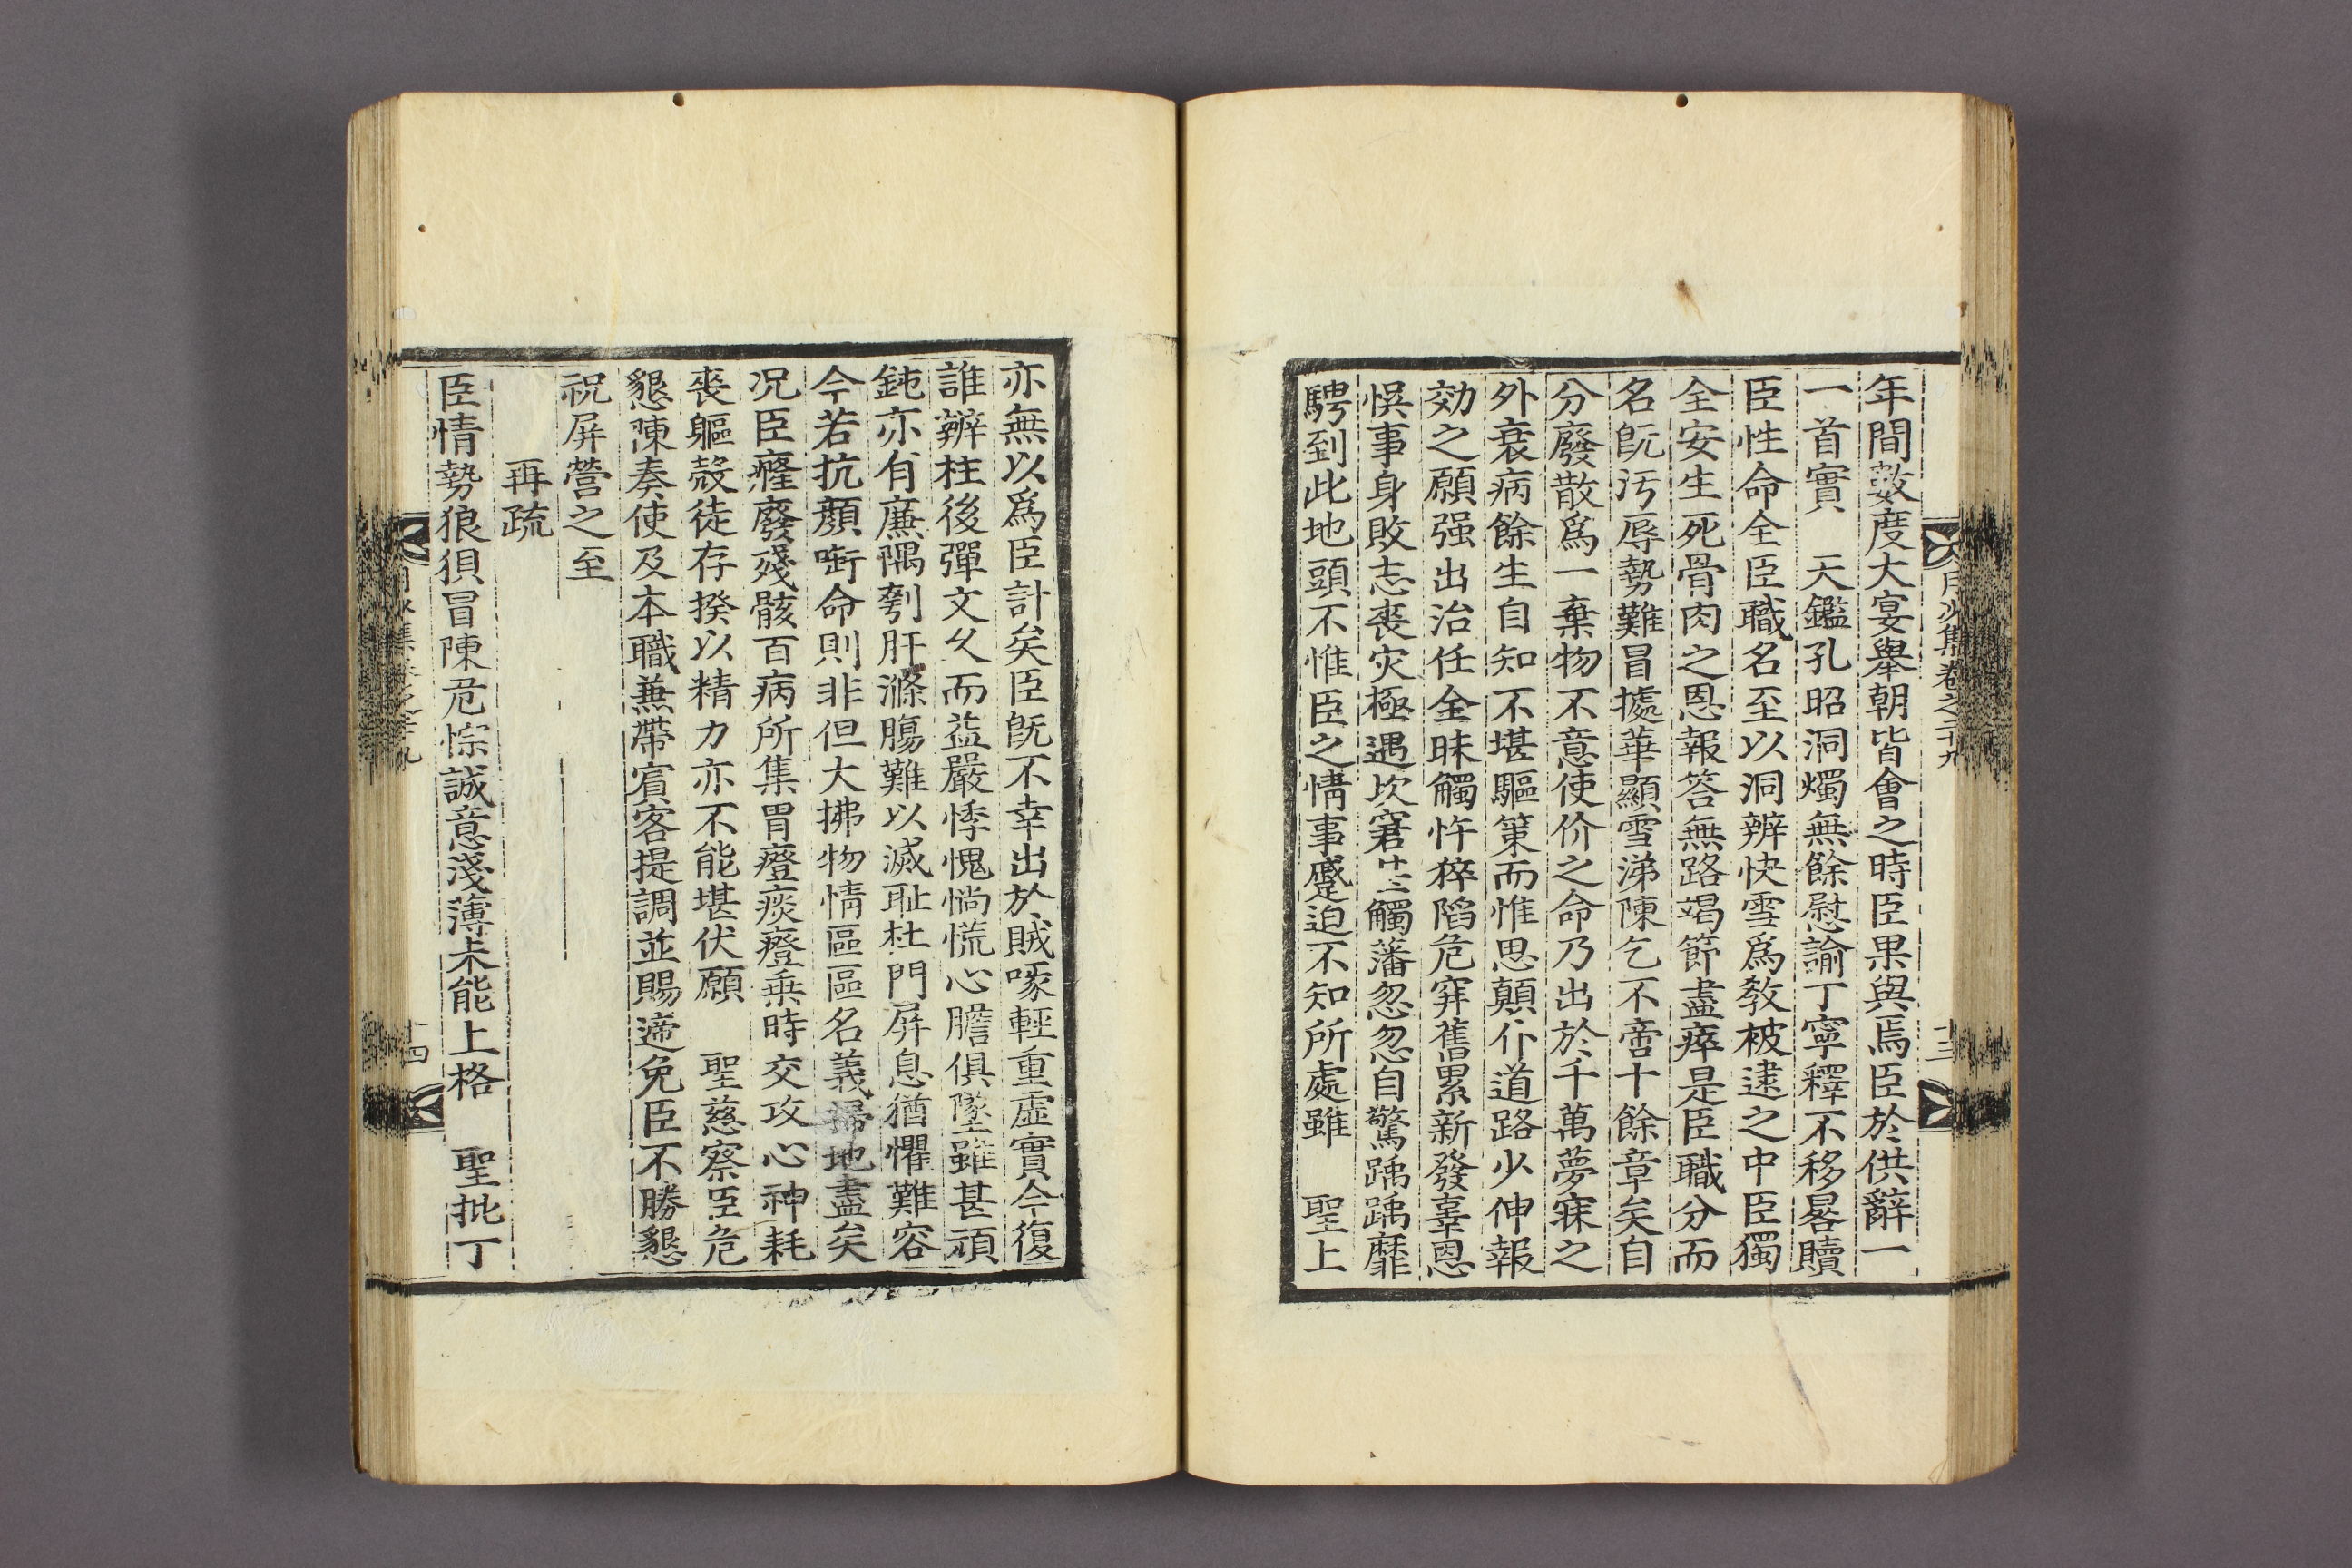 年間數度大宴舉朝皆會之時臣果與焉臣於供辭一
一首實　天鑑孔昭洞燭無餘慰諭丁寧釋不移晷贖
臣性命全臣職名至以洞辨快雪爲敎被逮之中臣獨
全安生死骨肉之恩報答無路竭節盡瘁是臣職分而
名旣汚辱勢難冒據華顯雪涕陳乞不啻十餘章矣自
分廢散爲一棄物不意使价之命乃出於千萬夢寐之
外衰病餘生自知不堪驅策而惟思顚仆道路少伸報
効之願强出治任全昧觸忤猝陷危穽舊累新發辜恩
悞事身敗志喪灾極遇坎窘甚觸藩忽忽自驚踽踽靡
騁到此地頭不惟臣之情事蹙迫不知所處雖　聖上
月沙集卷之二十九
十三
亦無以爲臣計矣臣旣不幸出於賊啄輕重虛實今復
誰辨柱後彈文久而益嚴悸愧惝慌心膽俱墜雖甚頑
鈍亦有廉隅刳肝滌腸難以滅耻杜門屛息猶懼難容
今若抗顔啣命則非但大拂物情區區名義掃地盡矣
况臣癃廢殘骸百病所集胃痰乘時交攻心神耗
喪軀殼徒存揆以精力亦不能堪伏願　聖慈察臣危
懇陳奏使及本職兼帶賓客提調並賜遞免臣不勝懇
祝屛營之至
再疏
臣情勢狼狽冒陳危悰誠意淺薄未能上格　聖批丁
月沙集卷之二十九
十四